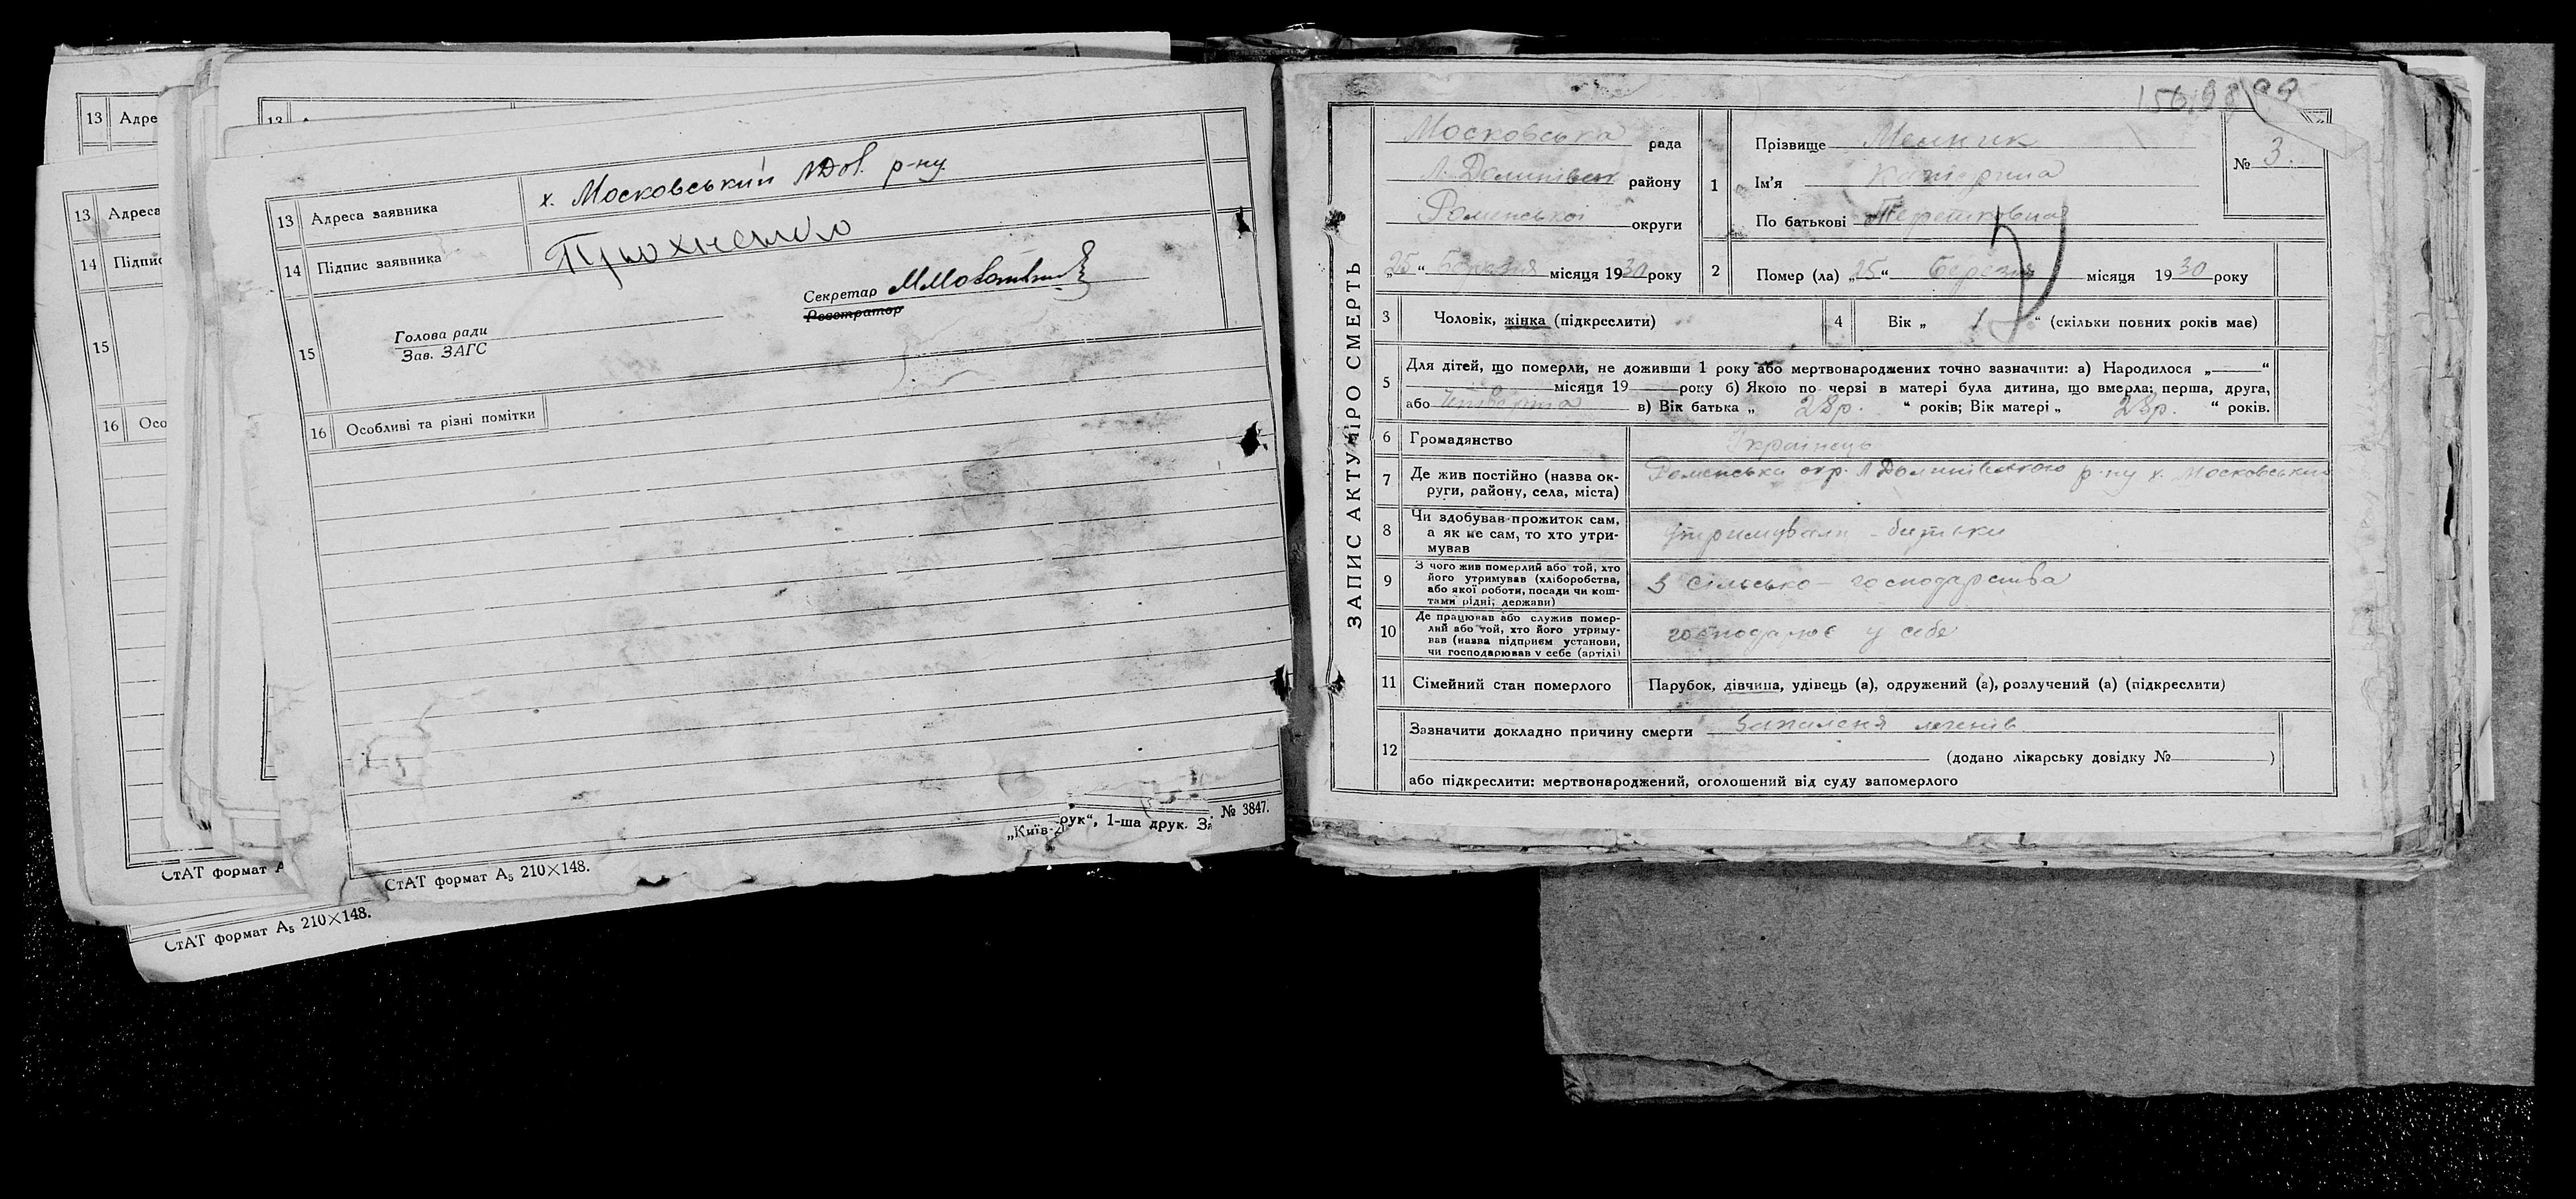 13 Адре
13 Адреса
14 Підпис
15
16 Осо
СтАТ формат А
СтАТ формат А₅ 210×148.
13 Адреса заявника х. Московський ЛДол. р-ну
14 Підпис заявника
15 Голова ради
Зав. ЗАГС
Секретар
Реєстратор
16 Особливі та різні помітки
СтАТ формат А₅ 210×148.
рук“, 1-ша друк. № 3847.
ЗАПИС АКТУ ПРО СМЕРТЬ
Московська рада
Л. Долинівськ району
Роменської округи
„25“ Березня місяця 1930 року
1 Прізвище Мельник
Ім'я Катерина
По батькові Терешковна
№ 3.
2 Помер (ла) „25“ Березня місяця 1930 року
3 Чоловік, жінка (підкреслити)
4 Вік „ 1 “ (скільки повних років має)
5 Для дітей, що померли, не доживши 1 року або мертвонароджених точно зазначити: а) Народилося „ “
місяця 19 року б) Якою по черзі в матері була дитина, що вмерла: перша, друга,
або четверта в) Вік батька „ 28р. “ років; Вік матері „ 28р. “ років.
6 Громадянство Українець
7 Де жив постійно (назва округи, району, села, міста) Роменська окр. Л Долинівського р-ну х. Московський
8 Чи здобував прожиток сам,
а як не сам, то хто утри-
мував утримували - батьки
9 З чого жив померлий або той, хто
його утримував (хліборобства,
або якої роботи, посади чи кош-
тами рідні, держави) З сільсько-господарства
10 Де працював або служив помер-
лий або той, хто його утриму-
вав (назва підприєм установи,
чи господарював у себе (артілі) господарює у себе
11 Сімейний стан померлого Парубок, дівчина, удівець (а), одружений (а), розлучений (а) (підкреслити)
12 Зазначити докладно причину смерти Запаленя легенів
(додано лікарську довідку № )
або підкреслити: мертвонароджений, оголошений від суду запомерлого